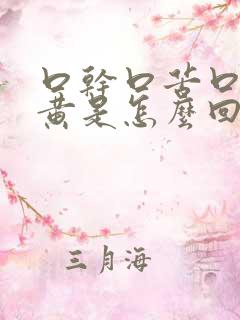 口幹口苦口
黄是怎麼回
三月海